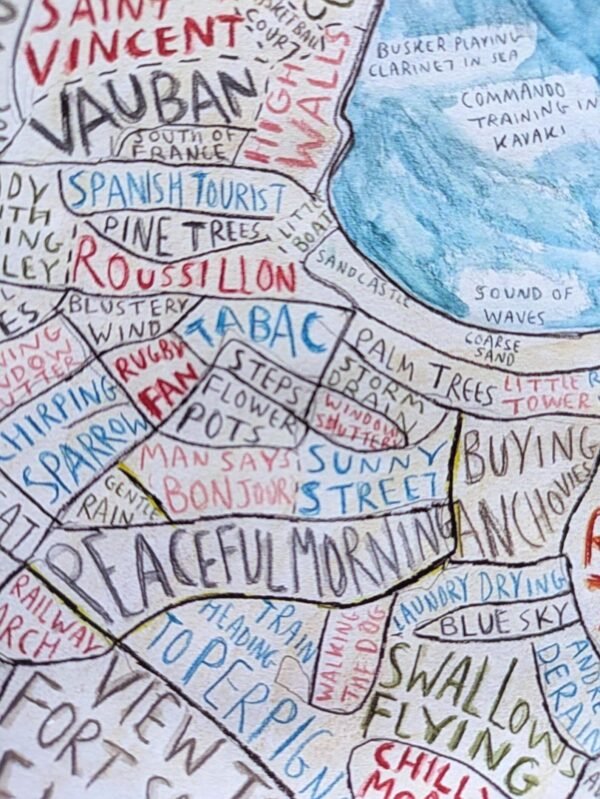 SAINT
VINCENT
VAUBAN
COURT
HIGH
WALLS
SOUTH OF
FRANCE
BUSKER PLAYING
CLARINET IN SEA
COMMANDO
TRAINING IN
KAYAKI
SPANISH TOURIST
PINE TREES
LITTLE
BOAT
ROUSSILLON
SANDCASTLE
SOUND OF
WAVES
COARSE
SAND
BLUSTERY
WIND
TABAC
PALM TREES
LITTLE
TOWER
RUGBY
FAN
STEPS
STORM
DRAIN
FLOWER
POTS
WINDOW
SHUTTERS
CHIRPING
SPARROW
MAN SAYS
BONJOUR
SUNNY
STREET
BUYING
ANCHOVIES
GENTLE
RAIN
PEACEFUL MORNING
RAILWAY
ARCH
TRAIN
HEADING
TO PERPIGN
WALKING
THE DOG
LAUNDRY DRYING
BLUE SKY
ANDRE
DERAIN
SWALLOWS
FLYING
VIEW T
FORT
CHILL